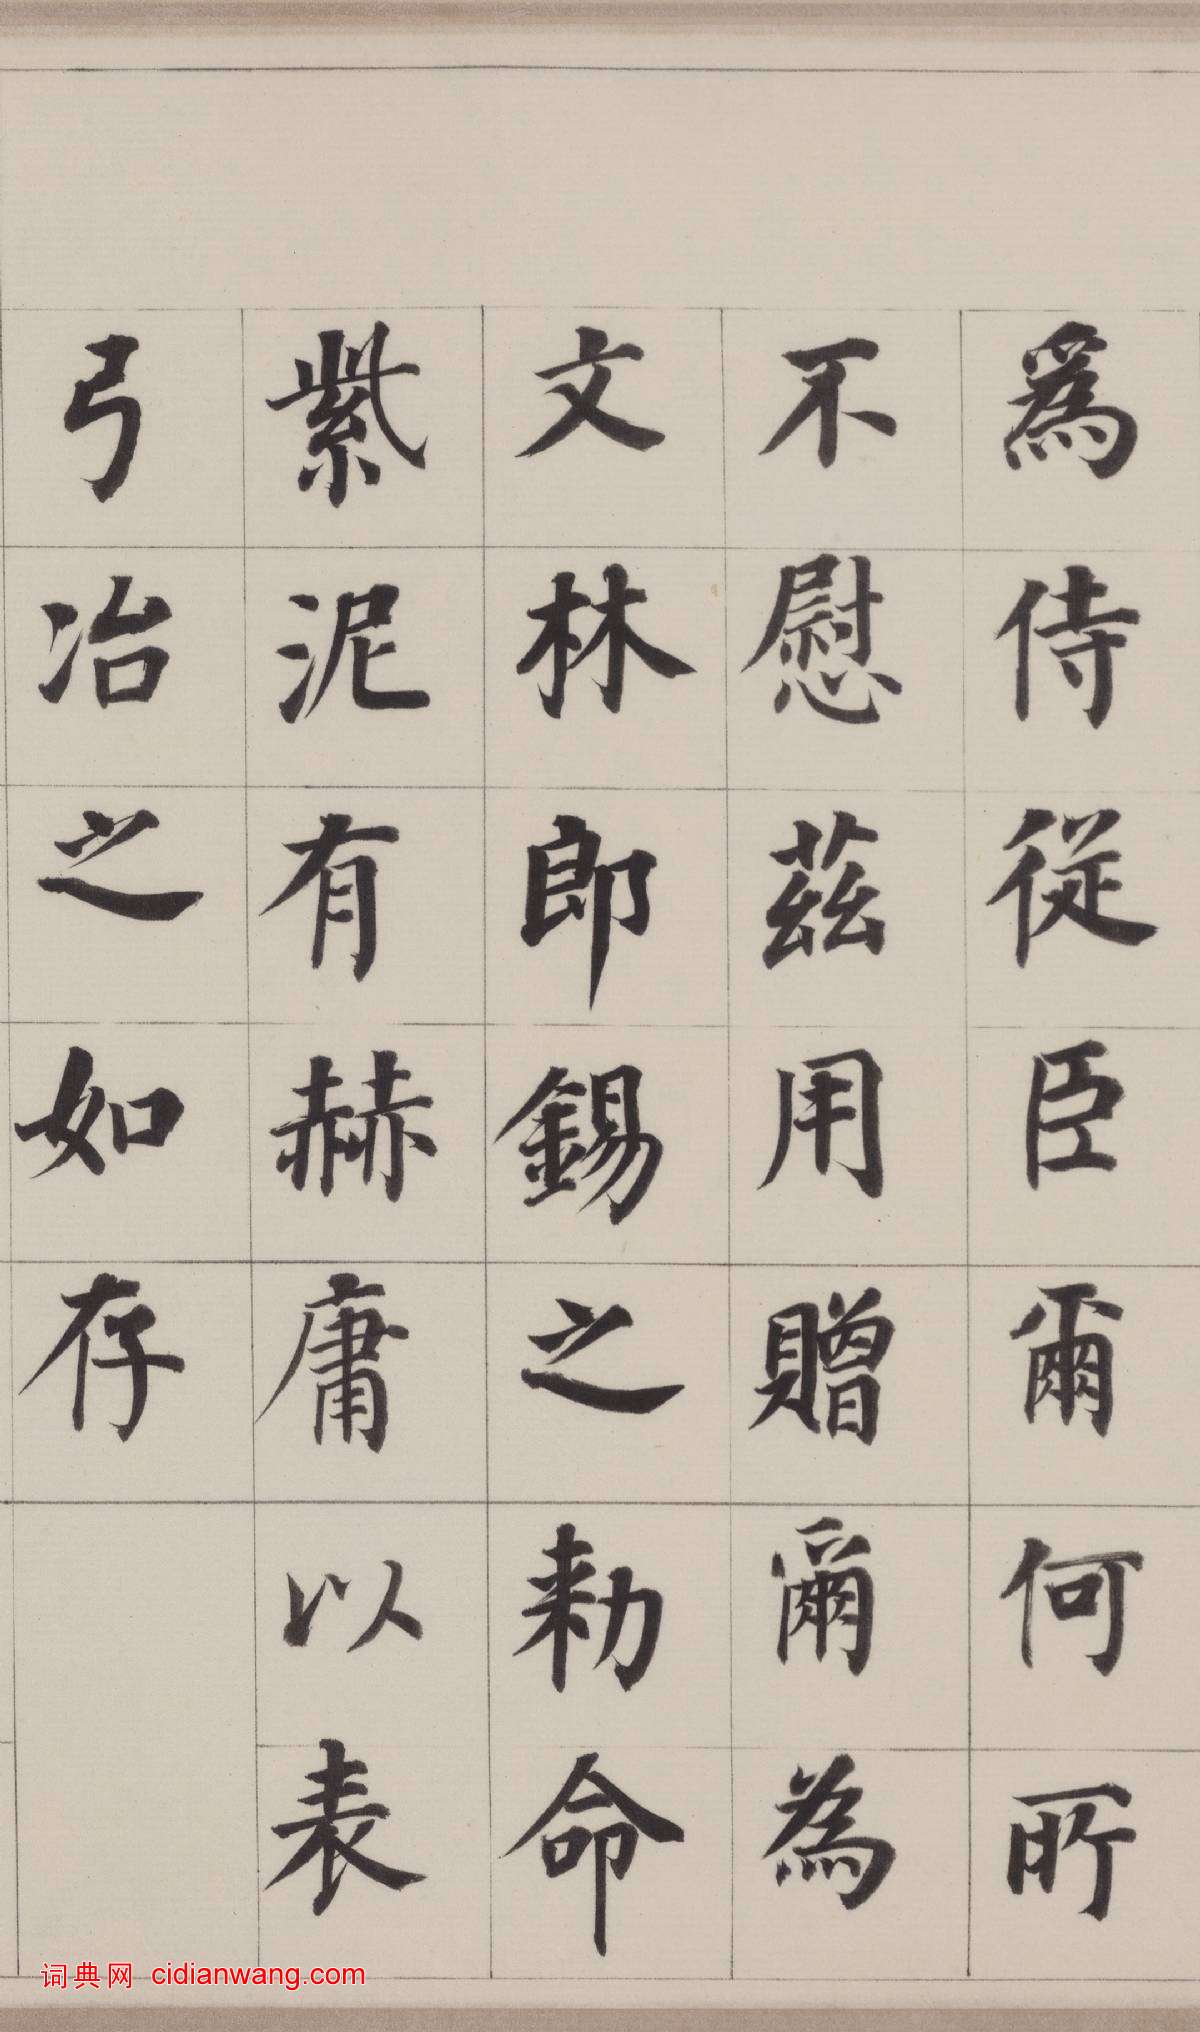 爲侍從臣爾何所
不慰茲用贈爾為
文林郎錫之勑命
紫泥有赫庸以表
弓冶之如存
词典网 cidianwang.com